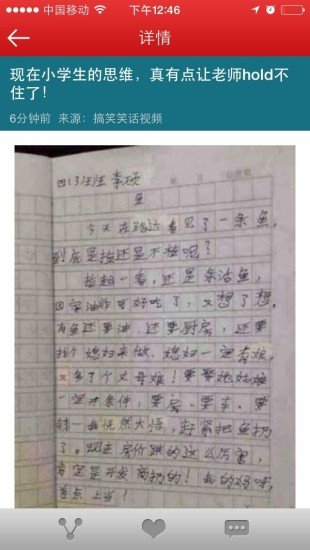 中国移动 下午12:46
详情
现在小学生的思维，真有点让老师hold不
住了！
6分钟前 来源：搞笑笑话视频
四(3)班 李硕
年 月 日
鱼
今天在路边看见了一条鱼，
到底是捡还是不捡呢？
捡起一看，还是条活鱼，
回家油炸可好吃了，又想了想，
有鱼还要油，还要厨房，还要
找个媳妇来做、媳妇一定有娘，
又多了个丈母娘！要娶她姑娘
一定开条件，要房、要车、要
钱—我恍然大悟，赶紧把鱼扔
了。现在房价跌的这么厉害，
肯定是开发商扔的！我的妈呀，
差点上当！